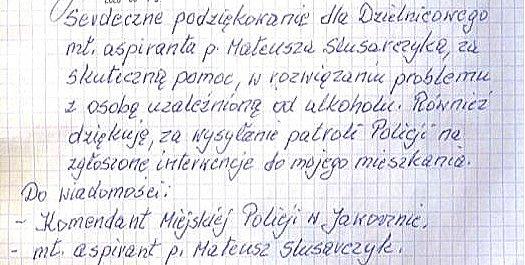 Serdeczne podziękowanie dla Dzielnicowego
mł. aspiranta p. Mateusza Slusarczyka, za
skuteczną pomoc, w rozwiązaniu problemu
z osobą uzależnioną od alkoholu. Również
dziękuję, za wysyłanie patroli Policji na
zgłoszone interwencje do mojego mieszkania.
Do wiadomości:
- Komendant Miejskiej Policji w Jaworznie.
- mł. aspirant p. Mateusz Slusarczyk.